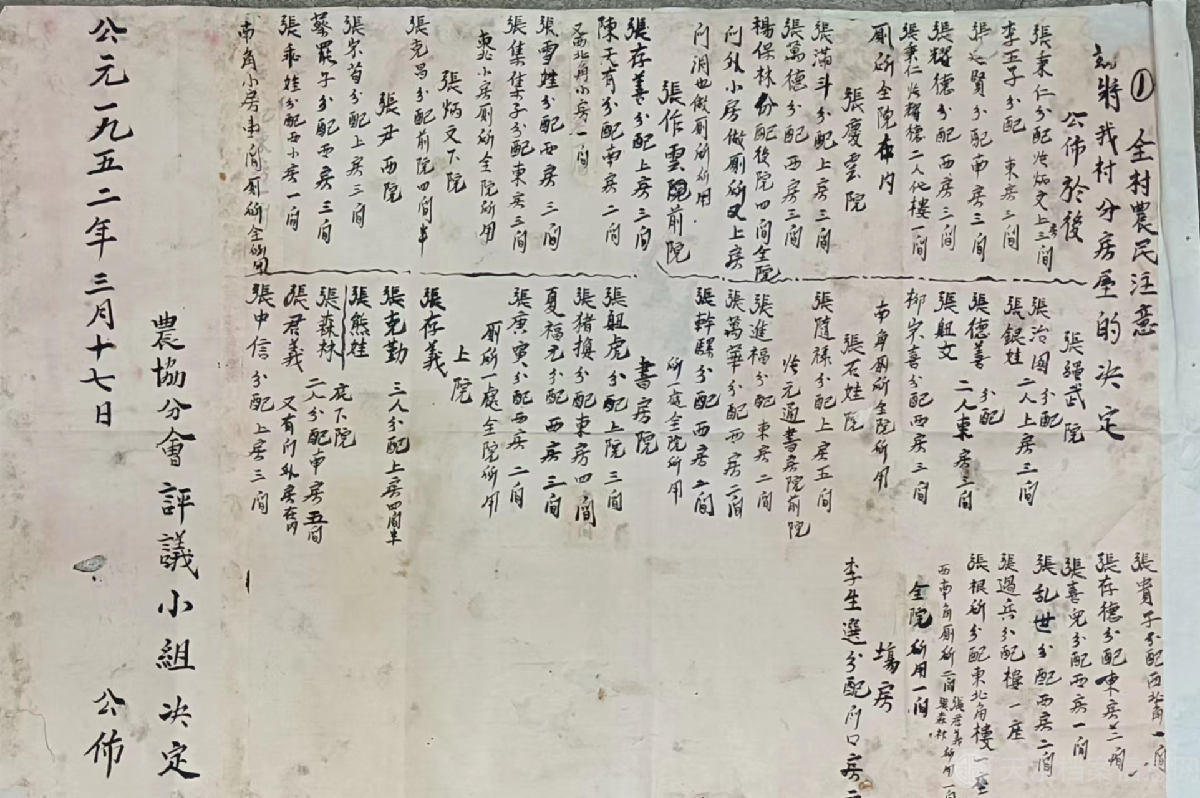 ① 全村農民注意
兹將我村分房屋的决定
公佈於後
張秉仁分配張炳文上房三間
李玉子分配 東房二間
張思賢分配南房三間
張耀德分配西房三間
張秉仁張耀德二人伙樓一間
厠所全院在内
張慶雲院
張滿斗分配上房三間
張萬德分配西房三間
楊保林份配後院四間全院
门外小房做厠所又上房
门洞也做厠所所用
張作雲院前院
張存善分配上房三間
陳天有分配南房二間
又西北角小房一間
張雪娃分配西房三間
張集生子分配東房三間
東北小房厠所全院所用
張炳文下院
張克昌分配前院四間半
張尹西院
張崇苟分配上房三間
蔡罷子分配西房三間
張乖娃分配西小房一間
南角小房車间厠所全院所用
張绳武院
張治國 分配
張銀娃 二人上房三間
張德善 分配
張組文 二人東房三間
柳崇喜分配西房三間
南角厠所全院所用
張石娃院
張隨禄分配上房五間
張元通書房院前院
張進福分配東房二間
張萬華分配西房二間
張幹騾分配西房二間
所一處全院所用
書房院
張組虎分配上院三間
張猪換分配東房四間
夏福元分配西房三間
張庚寅分配西房二間
厠所一處全院所用
上院
張存義
張克勤 三人分配上房四間半
張熊娃
底下院
張森林
張君義 二人分配南房五間
又有门外房在内
張中信分配上房三間
張貴子分配西北角一間
張存德分配東房三間
張喜兒分配西房一間
張乱世分配西房二間
張過兵分配樓一座
張根所分配東北角樓一座
西南角厠所二間張君義與森林所用一间
全院所用一间
塲房
李生選分配门口房二
農協分會評議小組决定
公元一九五二年三月十七日 公佈